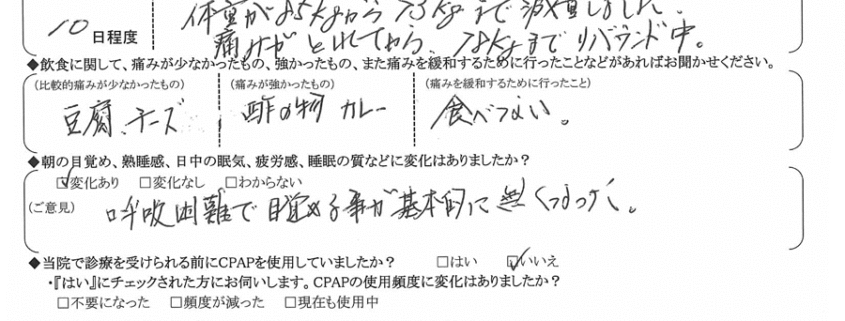 体重が85kgから73kgまで減量しました。
10日程度 痛みがとれてから、78kgまでリバウンド中。
◆飲食に関して、痛みが少なかったもの、強かったもの、また痛みを緩和するために行ったことなどがあればお聞かせください。
(比較的痛みが少なかったもの) (痛みが強かったもの) (痛みを緩和するために行ったこと)
豆腐、チーズ 酢の物 カレー 食べない。
◆朝の目覚め、熟睡感、日中の眠気、疲労感、睡眠の質などに変化はありましたか？
☑変化あり □変化なし □わからない
(ご意見) 呼吸困難で目覚める事が基本的に無くなった。
◆当院で診療を受けられる前にCPAPを使用していましたか？ □はい ☑いいえ
・『はい』にチェックされた方にお伺いします。CPAPの使用頻度に変化はありましたか？
□不要になった □頻度が減った □現在も使用中